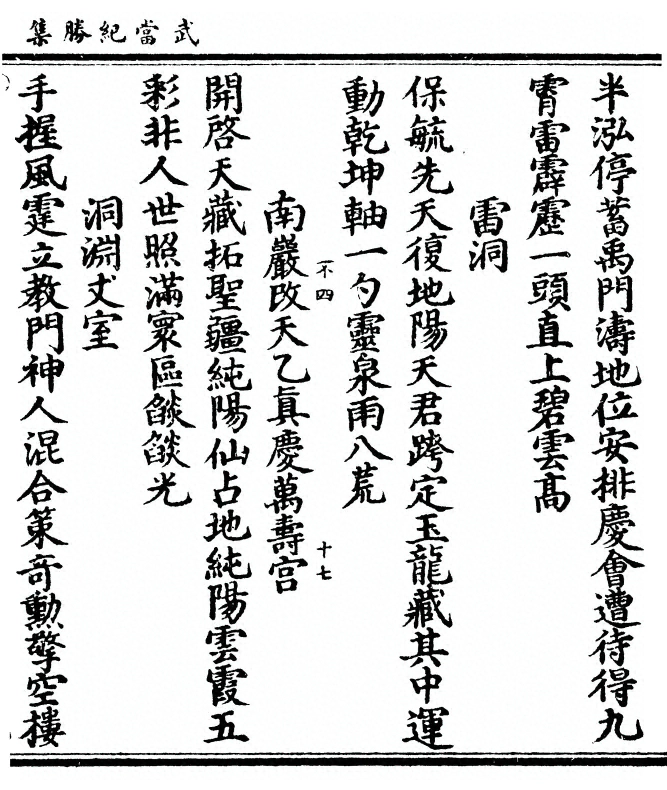 武當紀勝集
半泓停蓄禹門濤地位安排慶會遭待得九
霄雷霹靂一頭直上碧雲高
雷洞
保毓先天復地陽天君跨定玉龍藏其中運
動乾坤軸一勺靈泉雨八荒
不四
南巖改天乙真慶萬壽宮
十七
開啓天藏拓聖疆純陽仙占地純陽雲霞五
彩非人世照滿寰區燄燄光
洞淵丈室
手握風霆立教門神人混合策奇勲擎空摟